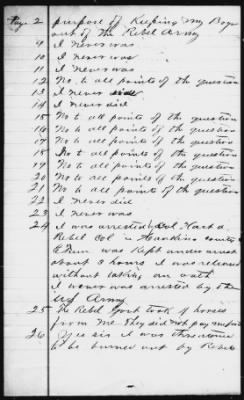 Page 2 purpose of Keeping my Boys
out of the Rebel Army
9 I never was
10 I never was
11 I never was
12 No to all points of the question
13 I never did
14 I never did
15 No to all points of the question
16 No to all points of the question
17 No to all points of the question
18 No to all points of the question
19 No to all points of the question
20 No to all points of the question
21 No to all points of the question
22 I never did
23 I never was
24 I was arrested by Col a
Rebel Col in Hawkins County
Tenn was Kept under arrest
about 3 hours I was released
without taking an oath
I never was arrested by the
US Army
25 The Rebel took 4 horses
from me They did not pay me for
26 Yes sir I was threatened
to be burned out by Rebels